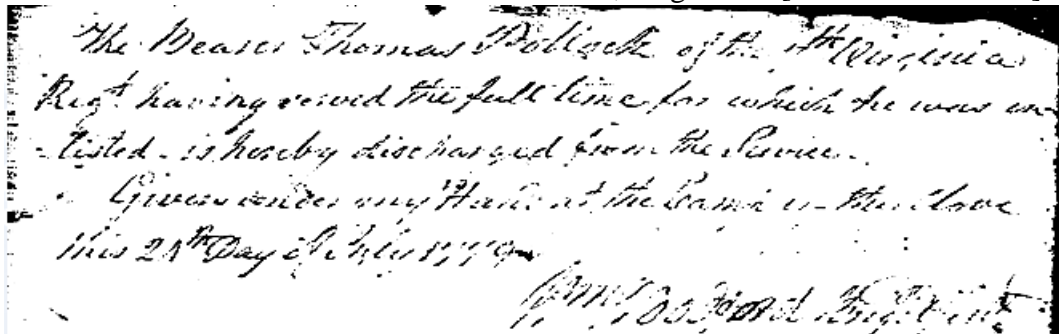 The Bearer Thomas Pollock of the Virginia
Regt having served the full time for which he was in-
-listed - is hereby discharged from the Service.
Given under my Hand at the Camp in the Clove
this Day of July 1779